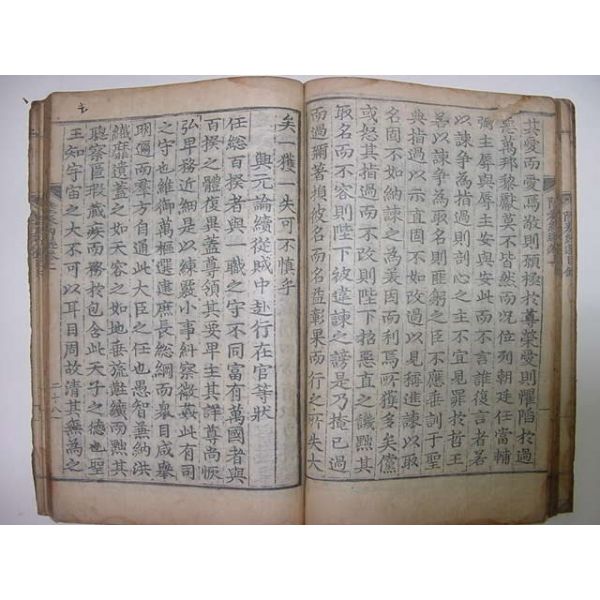 其愛而愛焉敬則願極於尊榮愛則懼陷於過
惡萬邦黎獻莫不皆然而況位列朝廷任當輔
弼主辱與辱主安與安此而不言誰復言者若
以諫爭為指過則剖心之主不宜見罪於哲王
以諫爭為取名則匪躬之臣不應垂訓於聖
典指過以示直固不如改過以見稱進諫以取
名固不如納諫之為美因而利焉所獲多矣儻
或怒其指過而不改則陛下招惡直之譏黜其
取名而不容則陛下被違諫之謗是乃掩已過
而過彌著損彼名而名益彰果而行之所失大
矣一獲一失可不慎乎
興元論續從賊中赴行在官等狀
任總百揆者與一職之守不同富有萬國者與
百揆之體復異蓋尊領其要卑主其詳尊尚恢
弘卑務近細是以練覈小事糾察微姦此有司
之守也維御萬樞選建庶長綱而衆目咸舉
明邇而羣方自通此大臣之任也愚智兼納洪
纖靡遺蓋之如天容之如地垂旒黈纊而黜其
聰察匿瑕藏疾而務於包含此天子之德也聖
王知宇宙之大不可以耳目周故清其無為之
二十八